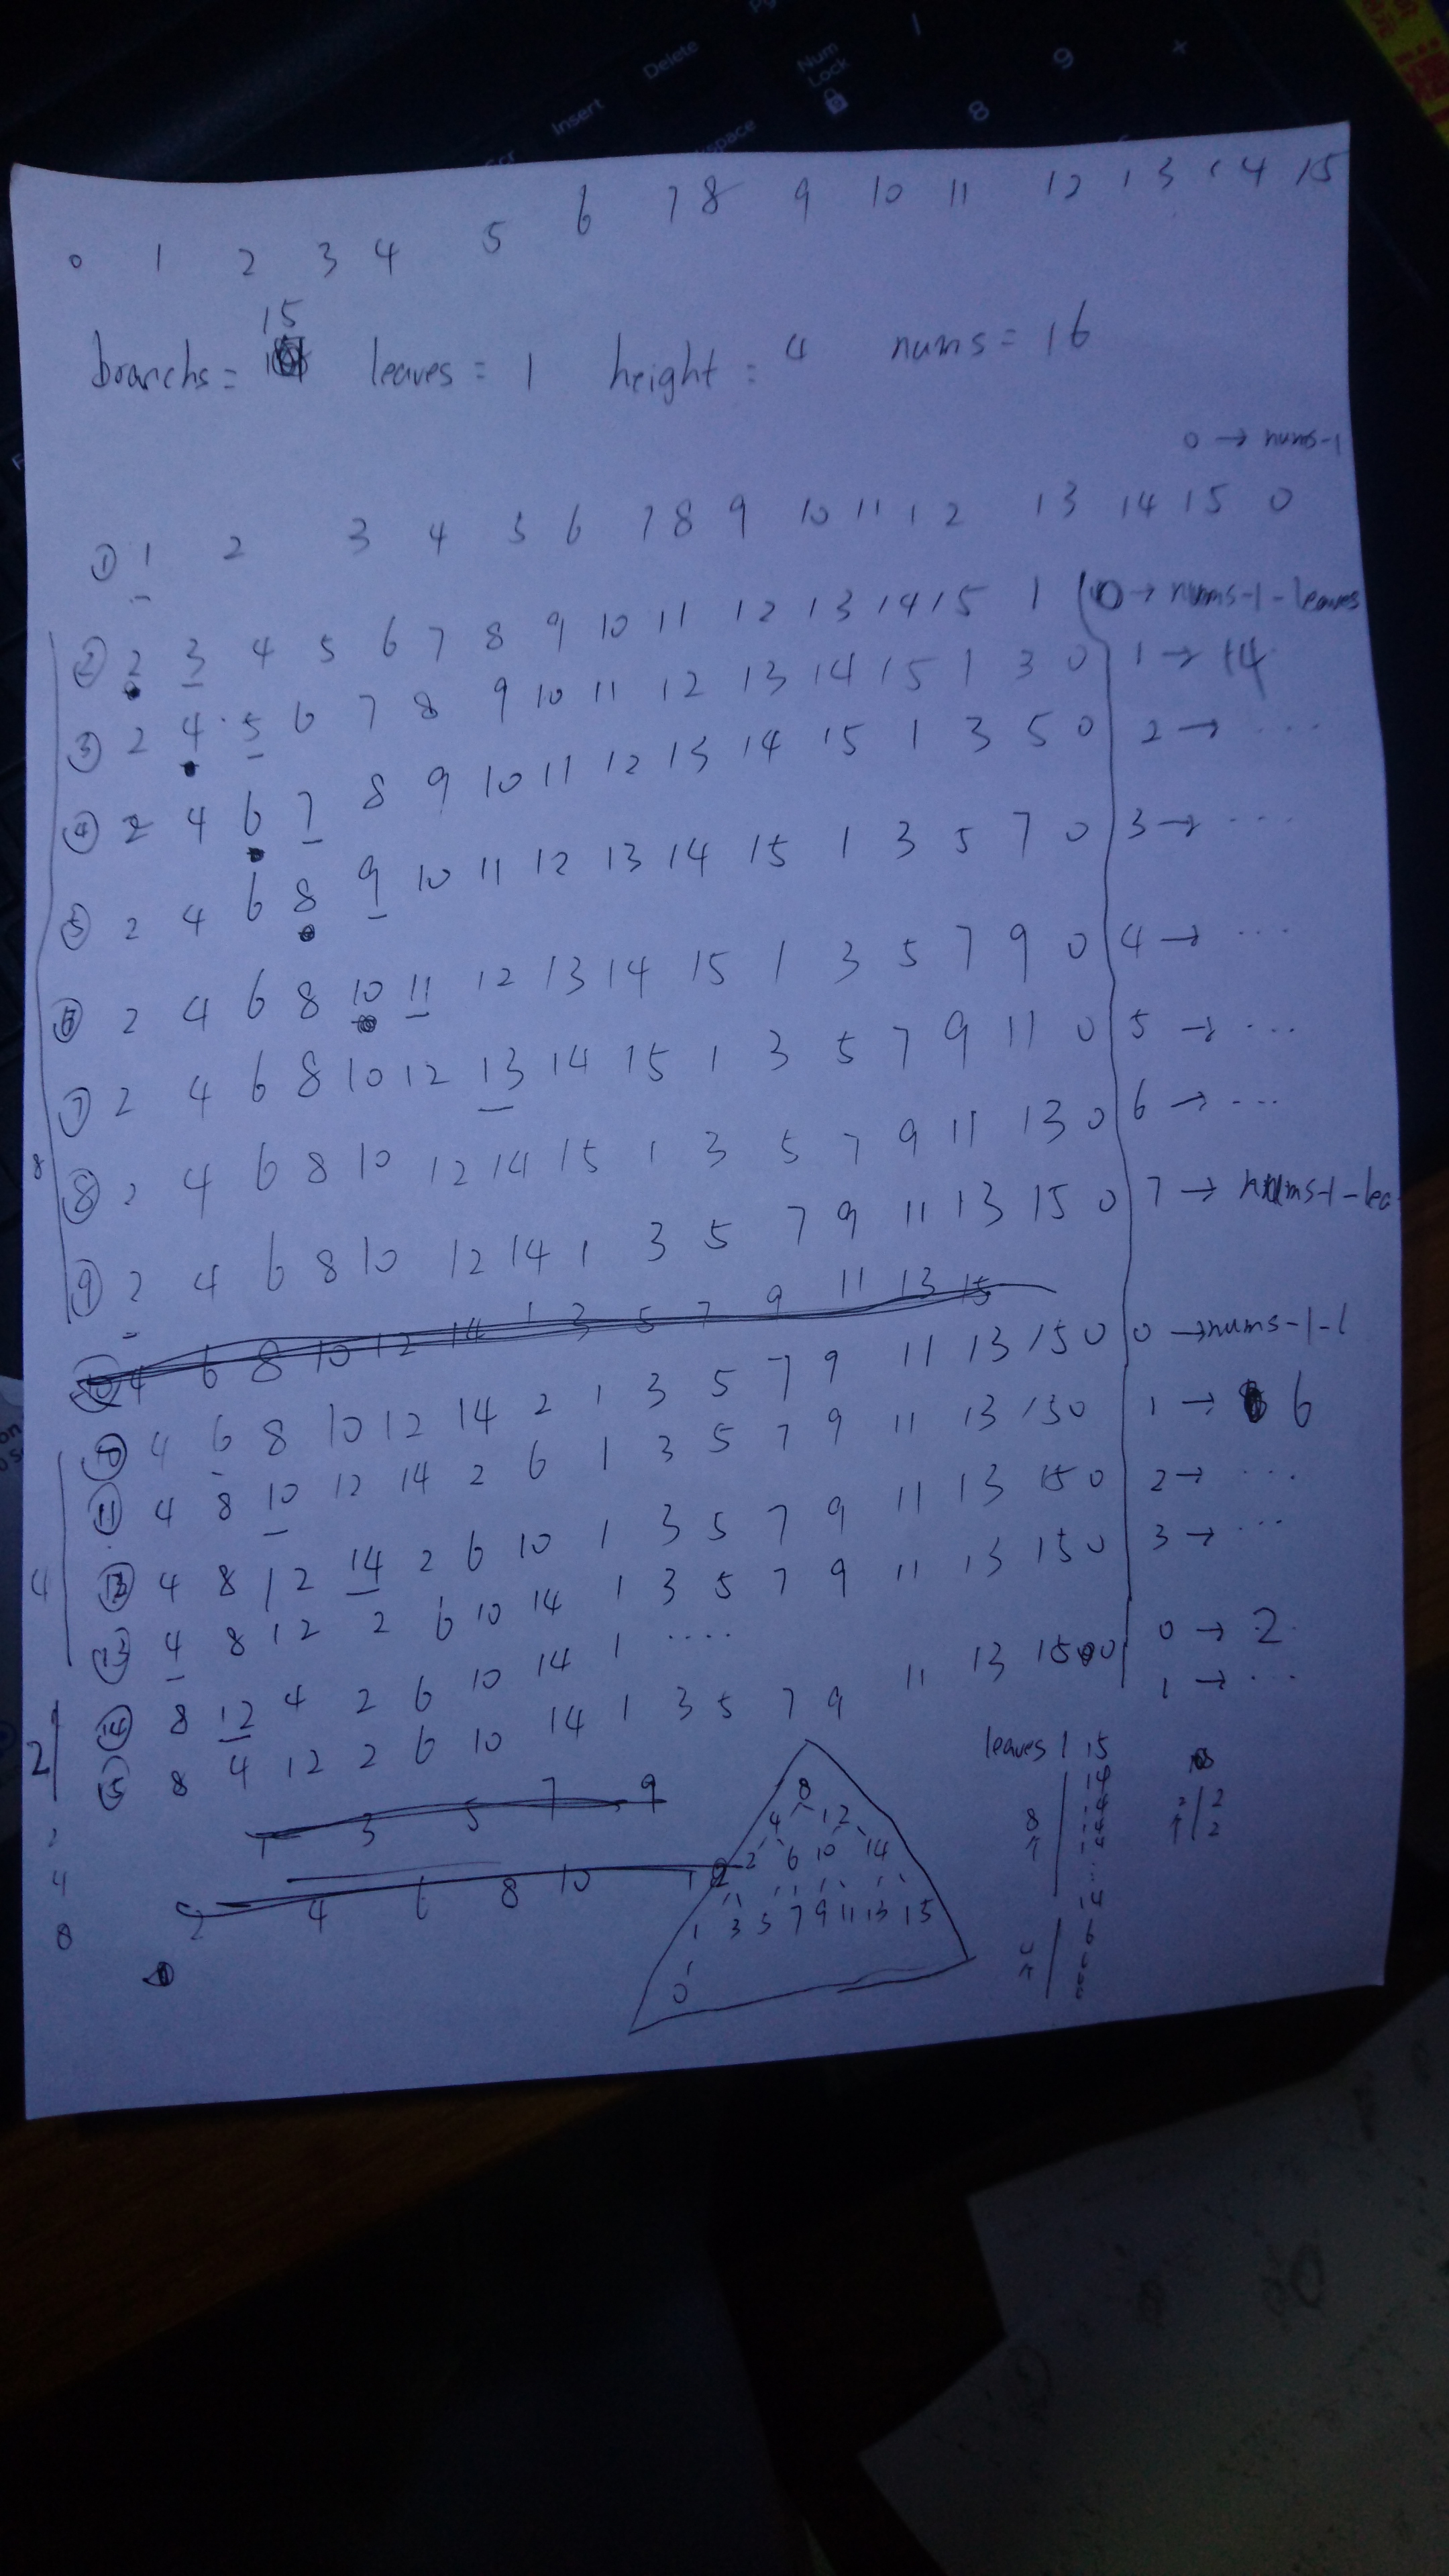 Delete
Insert
Num
Lock
9
+
8
0 1 2 3 4 5 6 7 8 9 10 11 12 13 14 15
15
branchs = leaves = 1 height = 4 nums = 16
0 → nums-1
① 1 2 3 4 5 6 7 8 9 10 11 12 13 14 15 0
② 2 3 4 5 6 7 8 9 10 11 12 13 14 15 1 0 → nums-1-leaves
③ 2 4 5 6 7 8 9 10 11 12 13 14 15 1 3 0 1 → 14
④ 2 4 6 7 8 9 10 11 12 13 14 15 1 3 5 0 2 → ...
⑤ 2 4 6 8 9 10 11 12 13 14 15 1 3 5 7 0 3 → ...
⑥ 2 4 6 8 10 11 12 13 14 15 1 3 5 7 9 0 4 → ...
⑦ 2 4 6 8 10 12 13 14 15 1 3 5 7 9 11 0 5 → ...
8
⑧ 2 4 6 8 10 12 14 15 1 3 5 7 9 11 13 0 6 → ...
⑨ 2 4 6 8 10 12 14 1 3 5 7 9 11 13 15 0 7 → nums-1-lea
4 6 8 10 12 14 1 3 5 7 9 11 13 15
⑩ 4 6 8 10 12 14 2 1 3 5 7 9 11 13 15 0 0 → nums-1-l
⑪ 4 8 10 12 14 2 6 1 3 5 7 9 11 13 15 0 1 → 6
4
⑫ 4 8 12 14 2 6 10 1 3 5 7 9 11 13 15 0 2 → ...
⑬ 4 8 12 2 6 10 14 1 3 5 7 9 11 13 15 0 3 → ...
2
⑭ 8 12 4 2 6 10 14 1 .... 0 → 2
⑮ 8 4 12 2 6 10 14 1 3 5 7 9 11 13 15 0 1 → ...
1 3 5 7 9
2 4 6 8 10 12
2
4
8
8
4 12
2 6 10 14
1 3 5 7 9 11 13 15
0
leaves 1 15
8 14
14
14
14
4 6
2 2
2